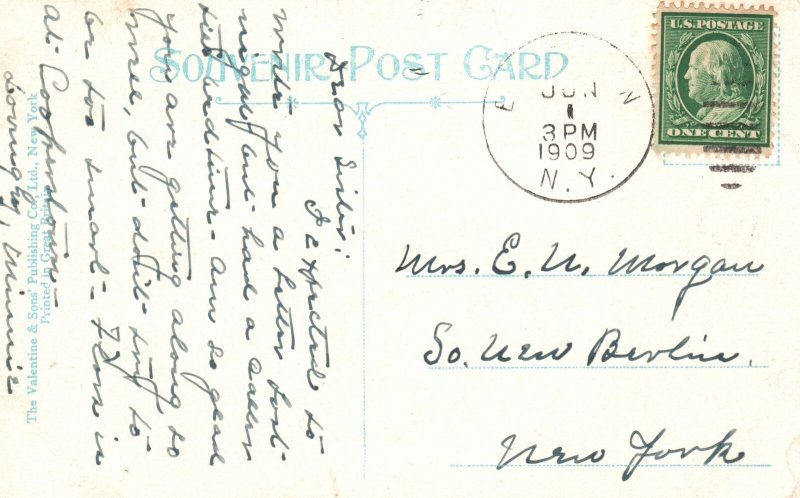 SOUVENIR POST CARD
U.S. POSTAGE
ONE CENT
JUN
1
3 PM
1909
N.Y.
Dear Sister:
I expected to
write you a letter last
night but had a caller
till bedtime - am so glad
you are getting along so
nice, but don't try to
be too smart - Flora is
at Cooperstown -
Lovingly, Minnie
Mrs. E. N. Morgan
So. New Berlin.
New York
The Valentine & Sons' Publishing Co., Ltd., New York
Printed in Great Britain